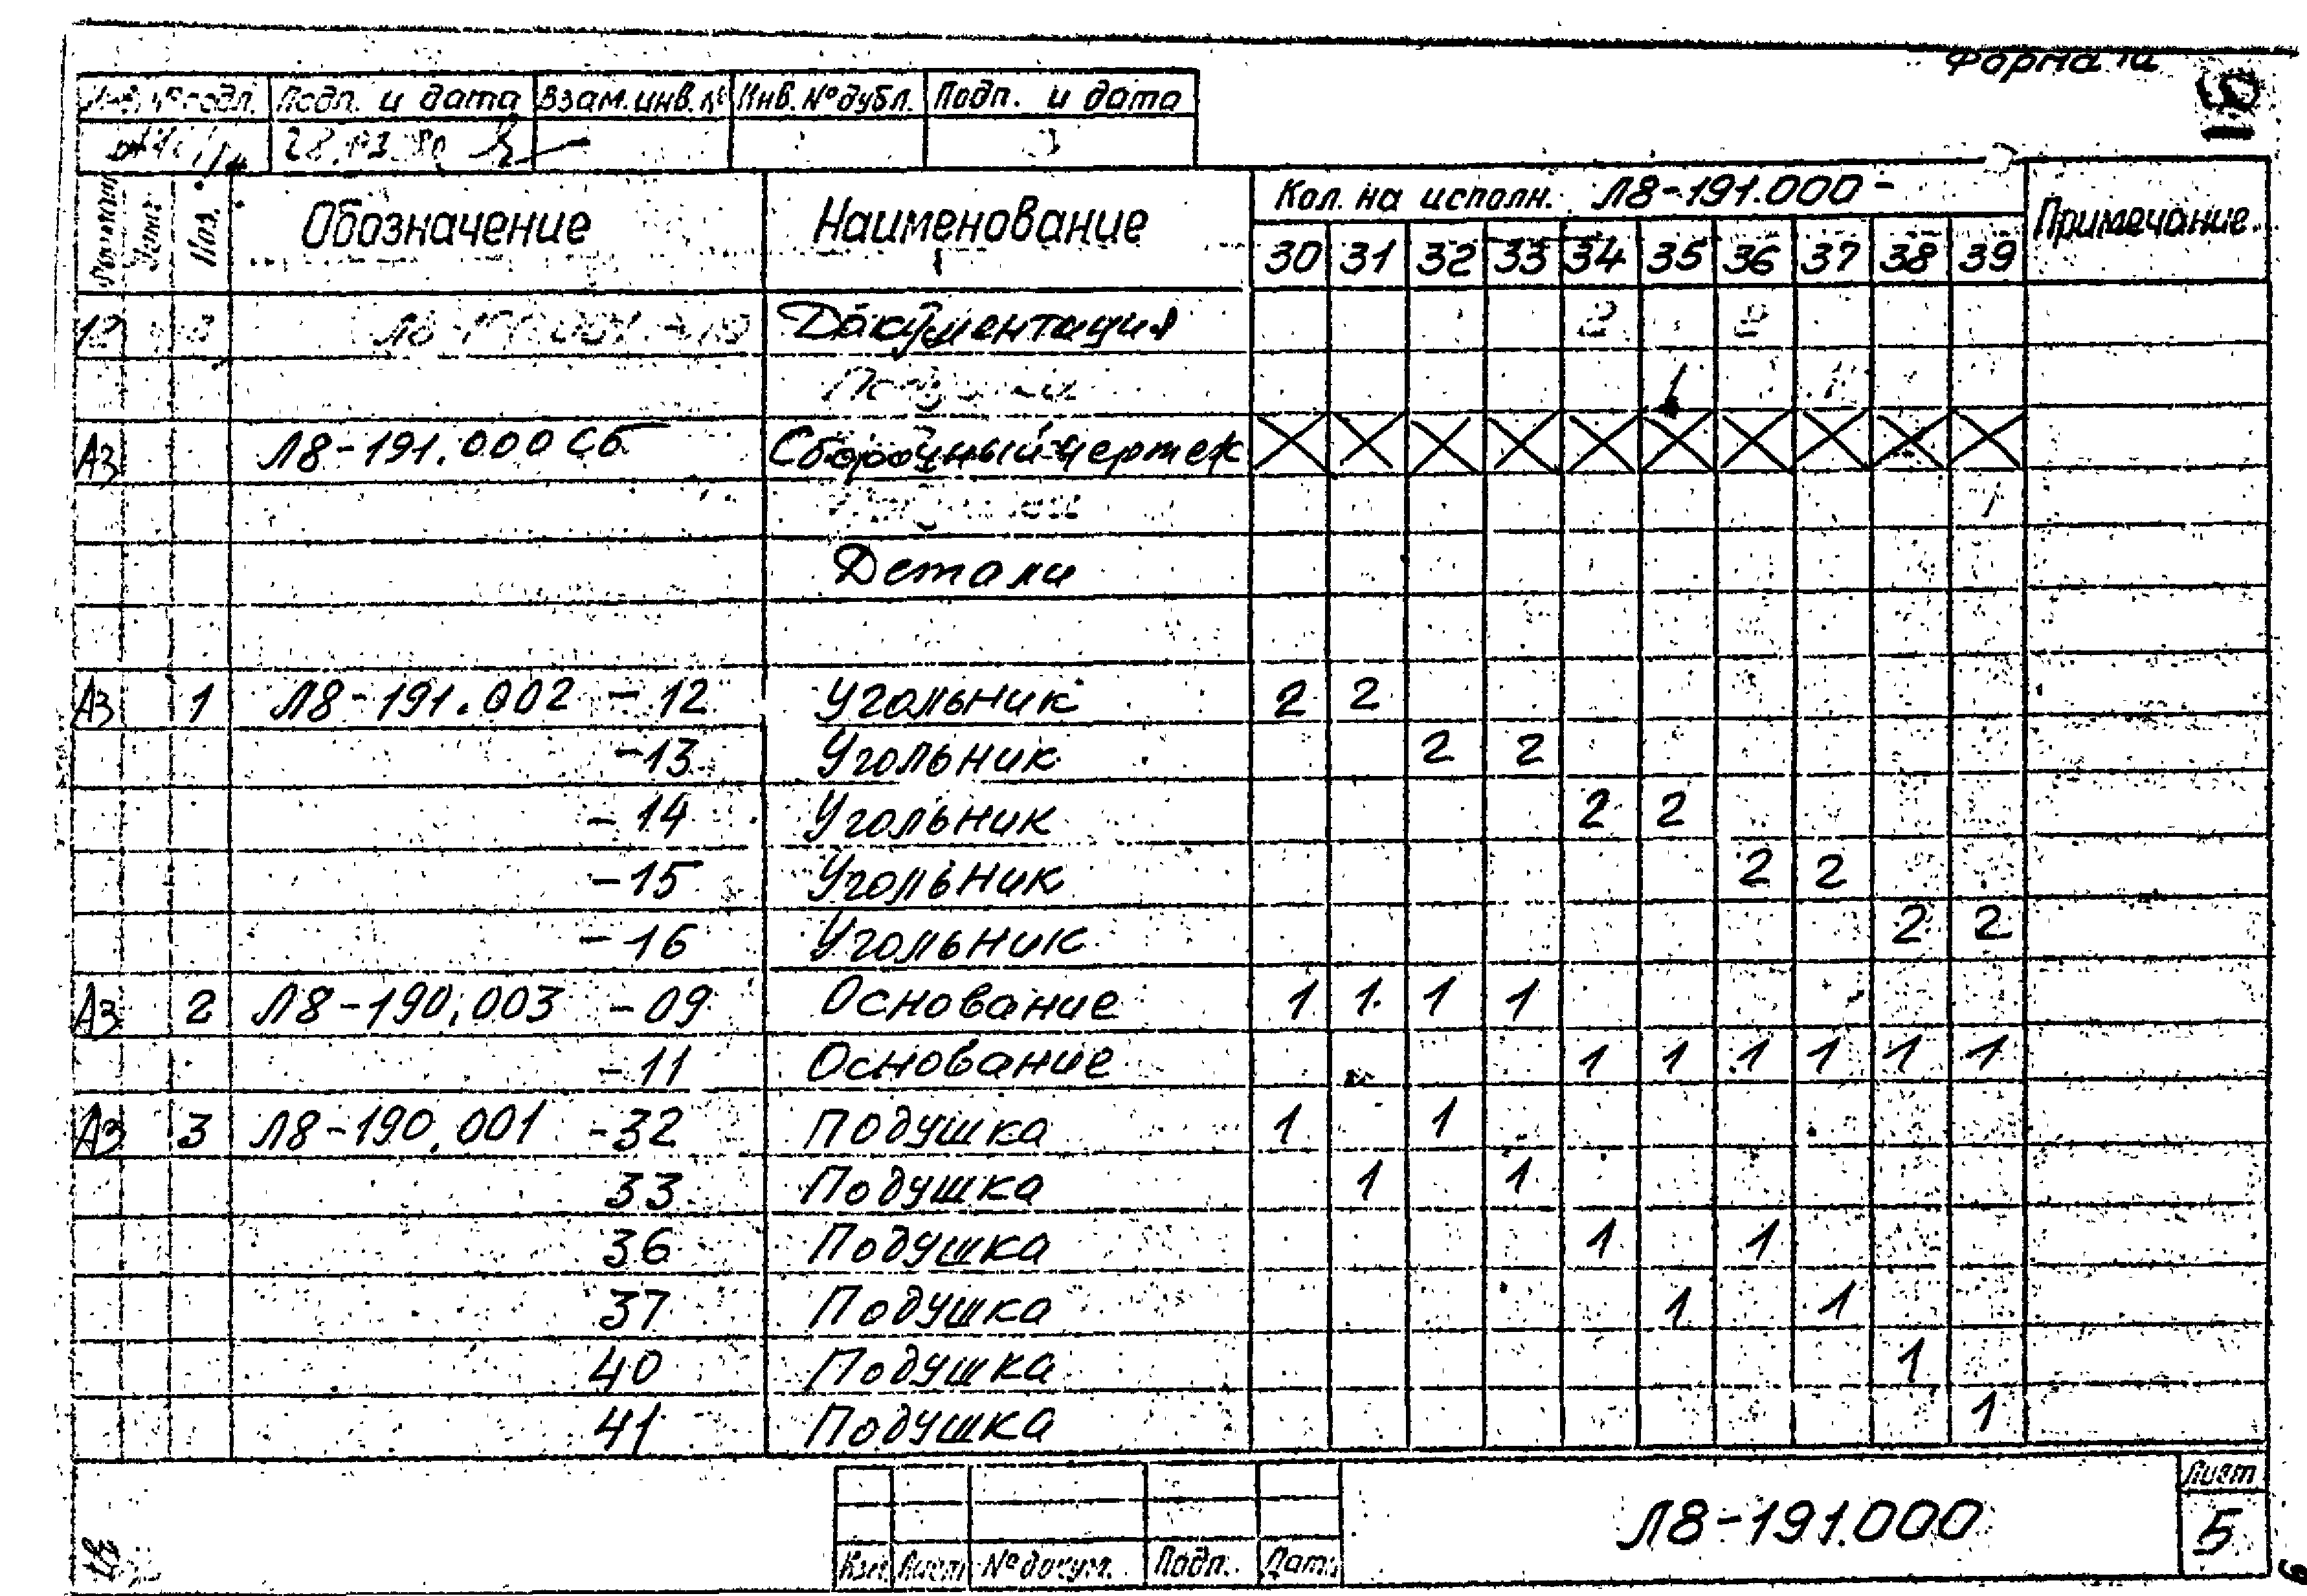 Форма 1а
Подп. и дата Взам.инв.№ Инв.№дубл. Подп. и дата
Поз. Обозначение Наименование Кол. на исполн. Л8-191.000- Примечание
30 31 32 33 34 35 36 37 38 39
Документация
А3 Л8-191.000 Сб Сборочный чертеж
Детали
А3 1 Л8-191.002 -12 Угольник 2 2
-13 Угольник 2 2
-14 Угольник 2 2
-15 Угольник 2 2
-16 Угольник 2 2
А3 2 Л8-190.003 -09 Основание 1 1 1 1
-11 Основание 1 1 1 1 1 1
А3 3 Л8-190.001 -32 Подушка 1 1
33 Подушка 1 1
36 Подушка 1 1
37 Подушка 1 1
40 Подушка 1
41 Подушка 1
Л8-191.000 Лист
5
Изм. Лист №докум. Подп. Дат.